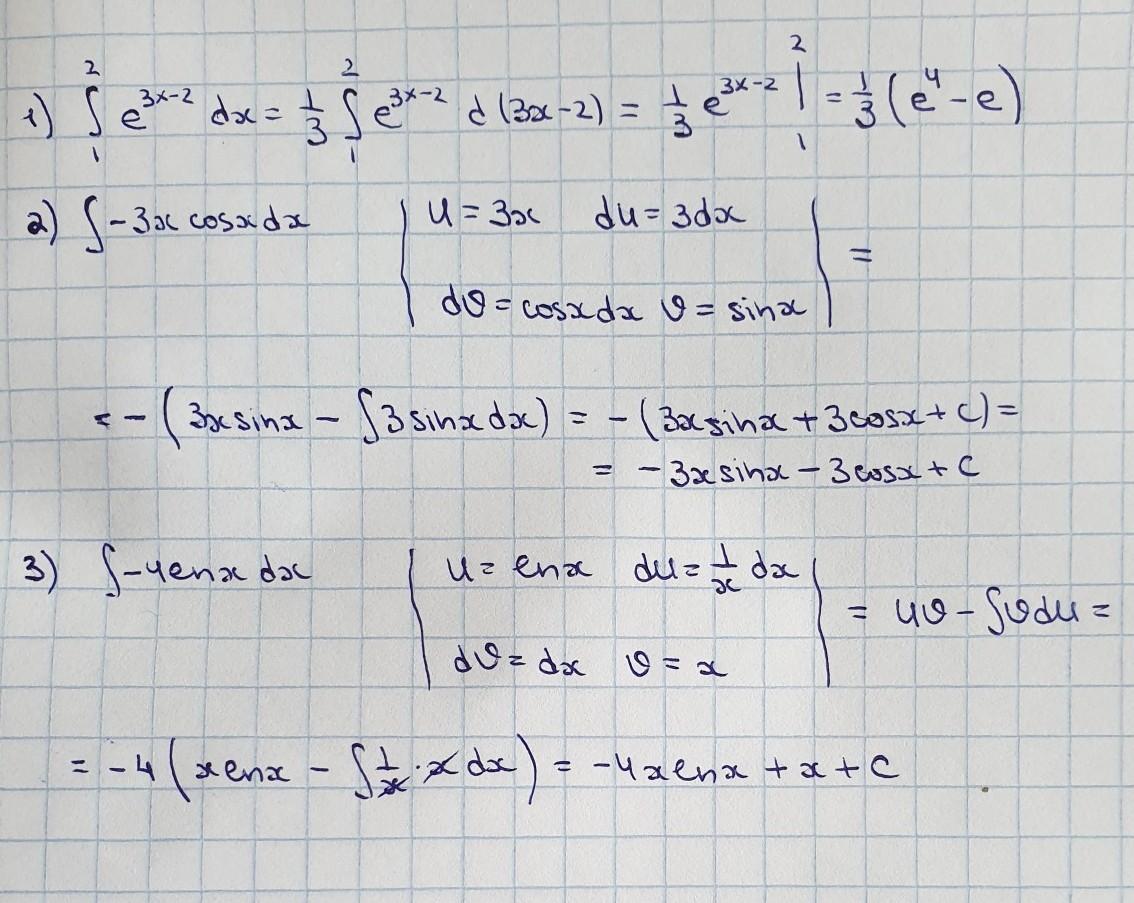 1) ∫₁² e^(3x-2) dx = 1/3 ∫₁² e^(3x-2) d(3x-2) = 1/3 e^(3x-2) |₁² = 1/3 (e⁴ - e)
2) ∫ -3x cosx dx | u = 3x du = 3dx | =
dv = cosx dx v = sinx
= - (3x sinx - ∫ 3 sinx dx) = - (3x sinx + 3 cosx + C) =
= -3x sinx - 3 cosx + C
3) ∫ -4 lnx dx | u = lnx du = 1/x dx | = uv - ∫ v du =
dv = dx v = x
= -4 (x lnx - ∫ 1/x · x dx) = -4x lnx + x + C